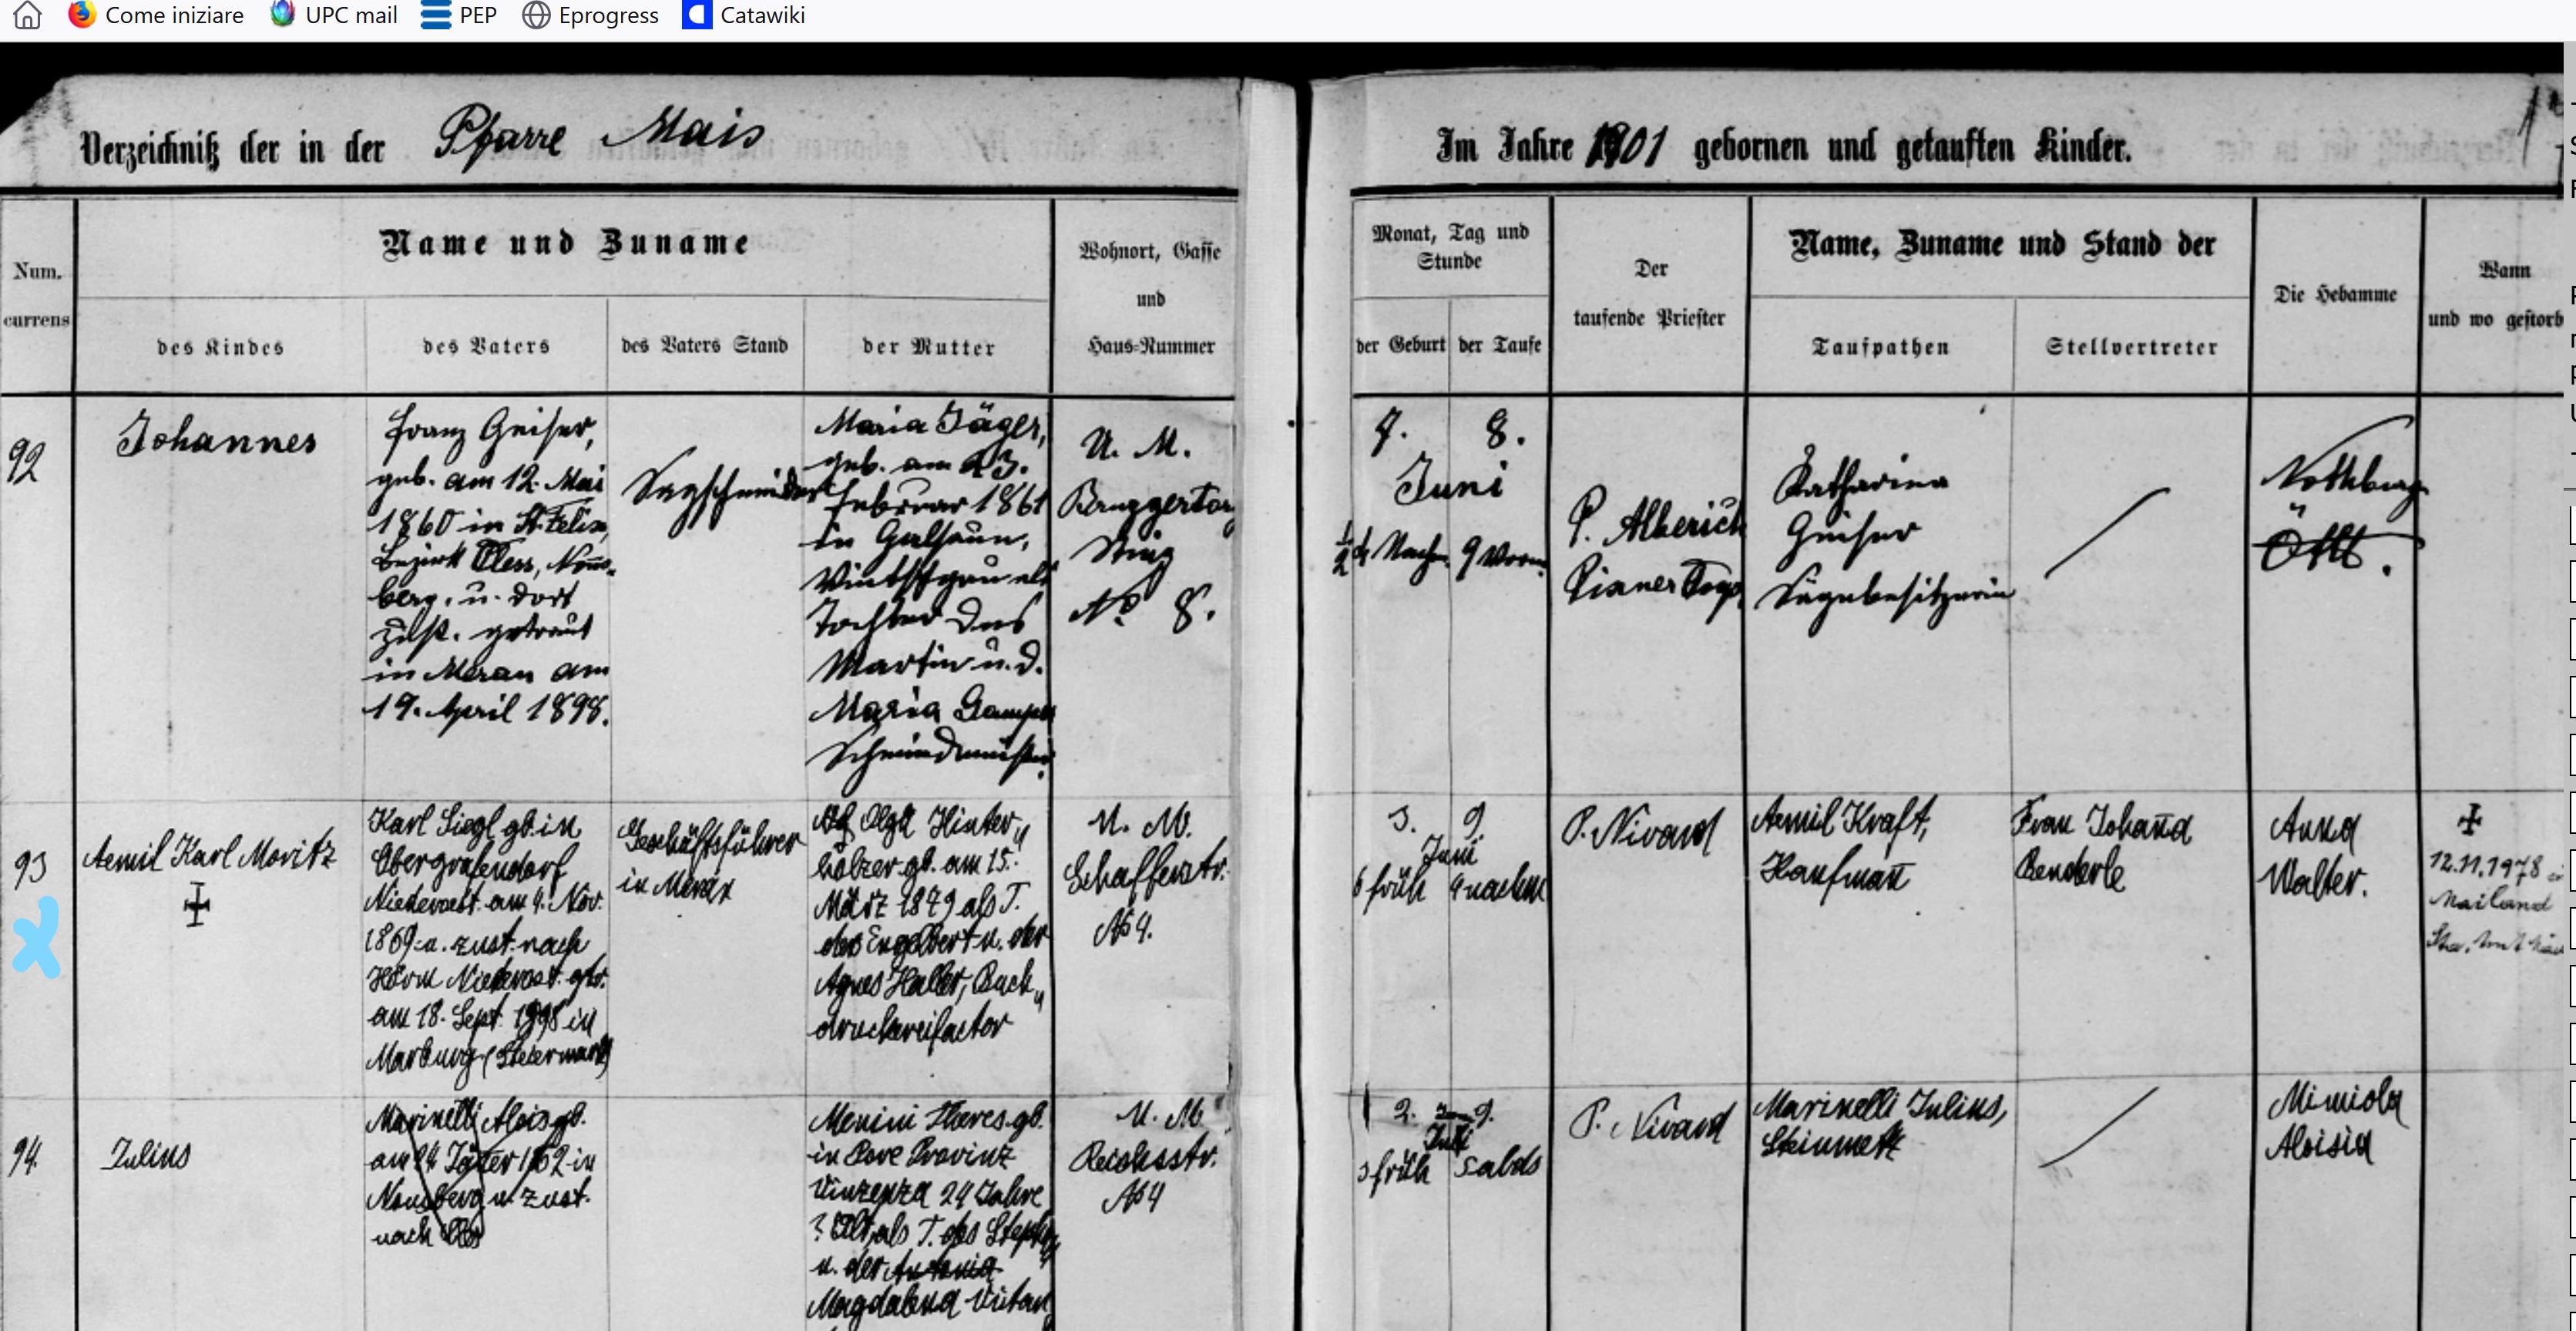 Come iniziare UPC mail PEP Eprogress Catawiki
Verzeichniß der in der Pfarre Mais
Im Jahre 1901 gebornen und getauften Kinder.
Num. currens
Name und Zuname
des Kindes
des Vaters
des Vaters Stand
der Mutter
Wohnort, Gasse
und
Haus-Nummer
Monat, Tag und
Stunde
der Geburt
der Taufe
Der
taufende Priester
Name, Zuname und Stand der
Taufpathen
Stellvertreter
Die Hebamme
Wann
und wo gestorb
92
Johannes
Franz Geiser,
geb. am 12. Mai
1860 in St. Felix,
Bezirk Cless, Nons-
berg, u. dort
zust. getraut
in Meran am
19. April 1898.
Sagschneider
Maria Jäger,
geb. am 23.
Februar 1861
in Galsaun,
Vintschgau als
Tochter des
Martin u. d.
Maria Gamper
Schmiedmeister
U. M.
Bruggertor
Steig
No 8.
7. 8.
Juni
1/2 4 Nachm. 9 Vorm.
P. Alberich
Katharina
Geiser
Sägebesitzerin
Nothburg
Ött.
93
Aemil Karl Moritz
Karl Siegl gb. in
Obergrafendorf
Niederöst. am 4. Nov.
1869 u. zust. nach
Niederöst. gtr.
am 18. Sept. 1898 in
Marburg (Steiermark)
Geschäftsführer
in Meran
Olga Hinter„
hölzer gb. am 15.
März 1879 als T.
des Engelbert u. der
Agnes Haller, Buch„
druckereifactor
U. M.
Schafferstr.
No 4.
3. 9.
Juni
6 früh 4 nachm
P. Nivard
Aemil Kraft,
Kaufmañ
Frau Johaña
Benderle
Anna
Walter.
12.11.1978
Mailand
94.
Julius
Marinelli Alois gb.
am 24 Jäner 1862 in
Nonsberg u. zust.
nach
Menini Theres gb.
in Pove Provinz
Vinzenza 24 Jahre
? Alt, als T. des Stephan
u. der Antonia
Magdalena
U. M.
Reichsstr.
No 4
2. 9.
Juni
3 früh 5 abds
P. Nivard
Marinelli Julius,
Steinmetz
Mimiola
Aloisia